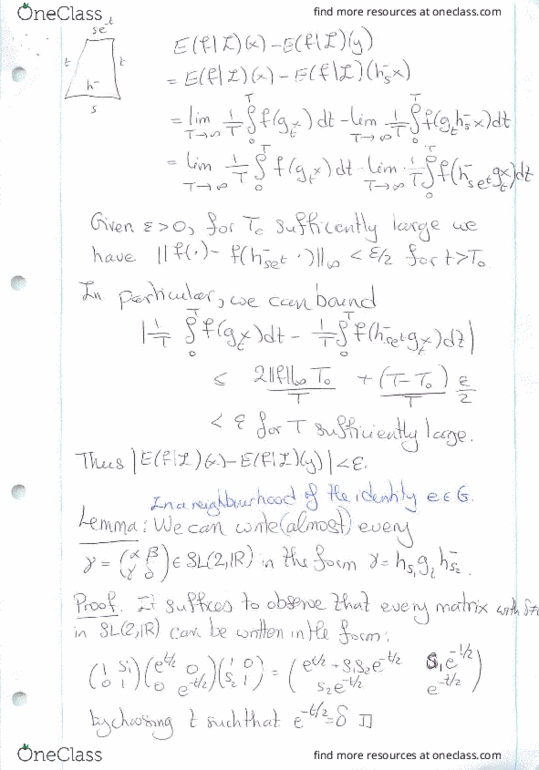 OneClass
find more resources at oneclass.com
se^-t
t t
h^-
s
E(f|I)(x) - E(f|I)(y)
= E(f|I)(x) - E(f|I)(h_s^- x)
= lim_{T→∞} 1/T ∫_0^T f(g_t x) dt - lim_{T→∞} 1/T ∫_0^T f(g_t h_s^- x) dt
= lim_{T→∞} 1/T ∫_0^T f(g_t x) dt - lim_{T→∞} 1/T ∫_0^T f(h^-_{se^t} g_t x) dt
Given ε>0, for T_0 sufficently large we
have ||f(·) - f(h^-_{se^t} ·)||_∞ < ε/2 for t>T_0.
In particular, we can bound
|1/T ∫_0^T f(g_t x) dt - 1/T ∫_0^T f(h^-_{se^t} g_t x) dt|
≤ 2||f||_∞ T_0 / T + (T-T_0)/T ε/2
< ε for T sufficiently large.
Thus |E(f|I)(x) - E(f|I)(y)| < ε.
In a neighbourhood of the identity e∈G.
Lemma: We can write (almost) every
γ = (α β / γ δ) ∈ SL(2,IR) in the form γ = h_{s_1} g_t h^-_{s_2}.
Proof. It suffices to observe that every matrix with
in SL(2,IR) can be written in the form:
(1 s_1 / 0 1)(e^{t/2} 0 / 0 e^{-t/2})(1 0 / s_2 1) = (e^{t/2} + s_1 s_2 e^{-t/2} s_1 e^{-t/2} / s_2 e^{-t/2} e^{-t/2})
by choosing t such that e^{-t/2} = δ □
OneClass
find more resources at oneclass.com